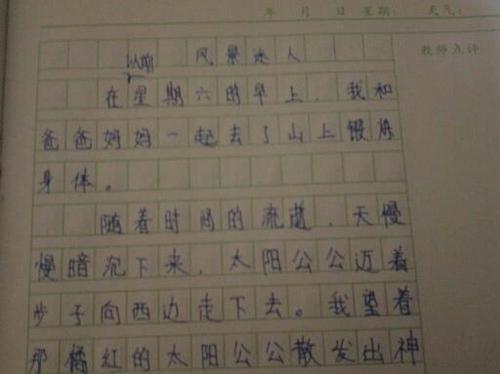 年 月 日 星期: 天气:
教师点评
风景迷人
以前
在星期六的早上，我和
爸爸妈妈一起去了山上锻炼
身体。
随着时间的流逝，天慢
慢暗沉下来，太阳公公迈着
步子向西边走下去。我望着
那橘红的太阳公公散发出神